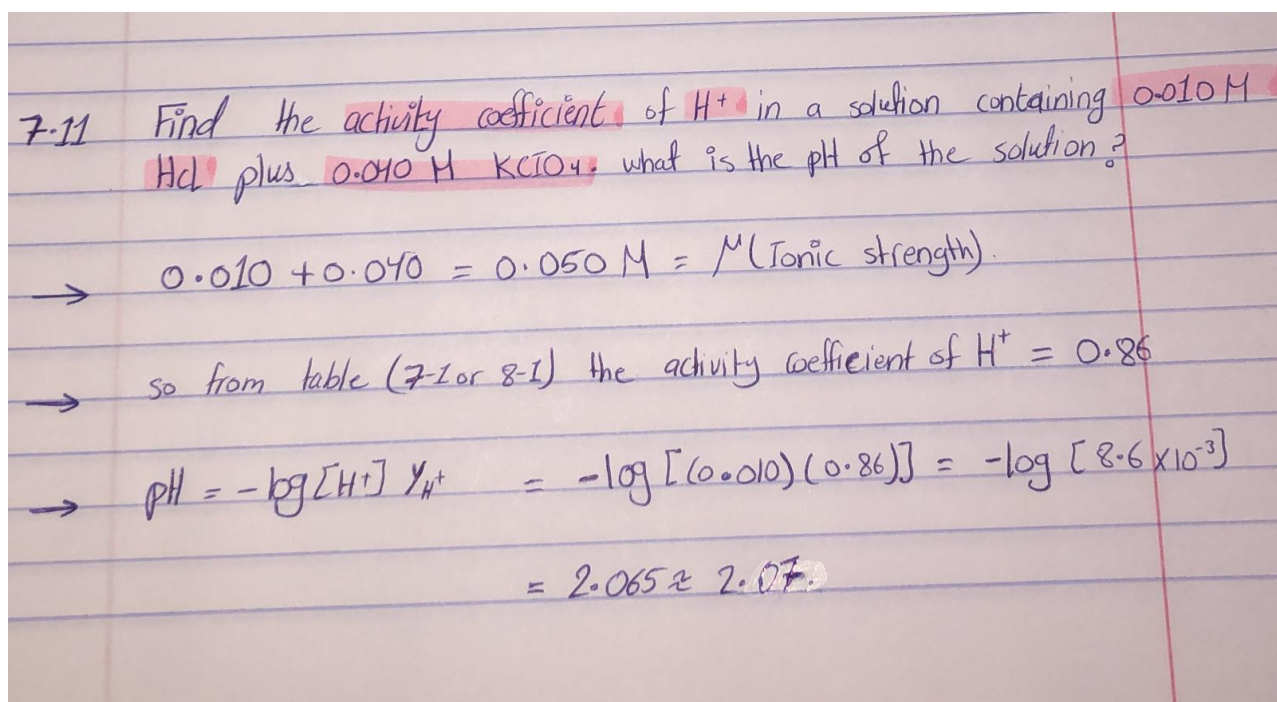 7.11 Find the activity coefficient of H+ in a solution containing 0.010 M
HCl plus 0.040 M KClO4. what is the pH of the solution?
→ 0.010 + 0.040 = 0.050 M = μ (Ionic strength).
→ so from table (7-1 or 8-1) the activity coefficient of H⁺ = 0.86
→ pH = -log[H+] γH+ = -log [(0.010)(0.86)] = -log [8.6 x10⁻³]
= 2.065 ≈ 2.07.